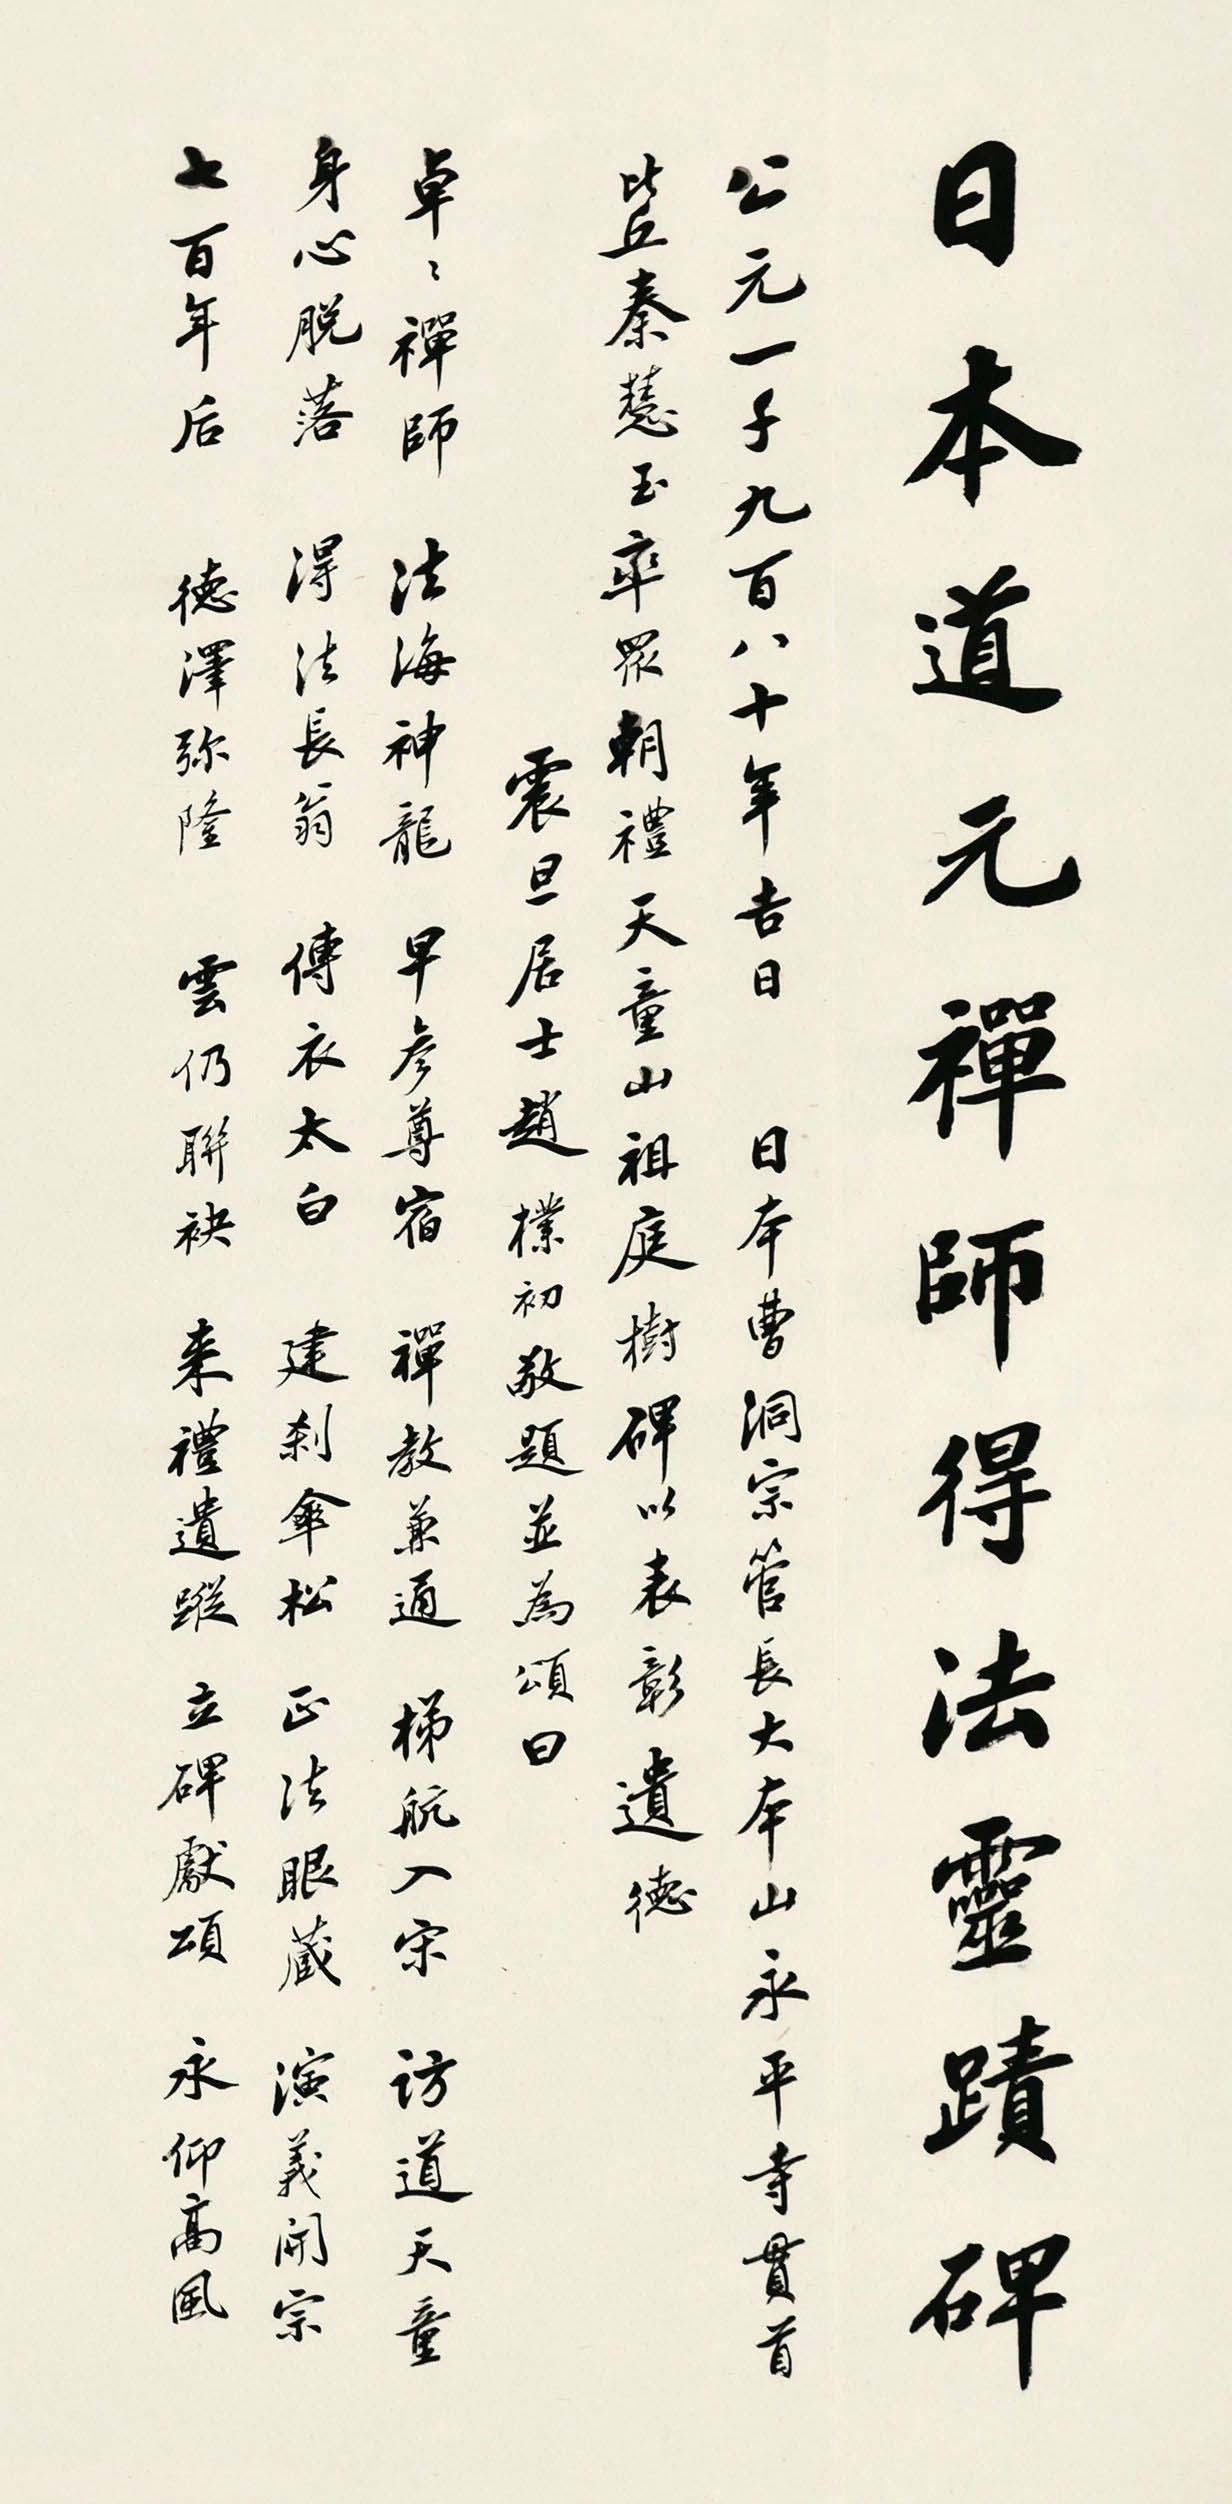 日本道元禪師得法靈蹟碑
公元一千九百八十年吉日 日本曹洞宗管長大本山永平寺貫首
比丘秦慧玉率眾朝禮天童山祖庭樹碑以表彰遺德
震旦居士趙樸初敬題並為頌曰
卓々禪師 法海神龍 早參尊宿 禪教兼通 梯航入宋 訪道天童
身心脫落 得法長翁 傳衣太白 建刹傘松 正法眼藏 演義開宗
七百年后 德澤弥隆 雲仍聯袂 来禮遺蹤 立碑獻頌 永仰高風